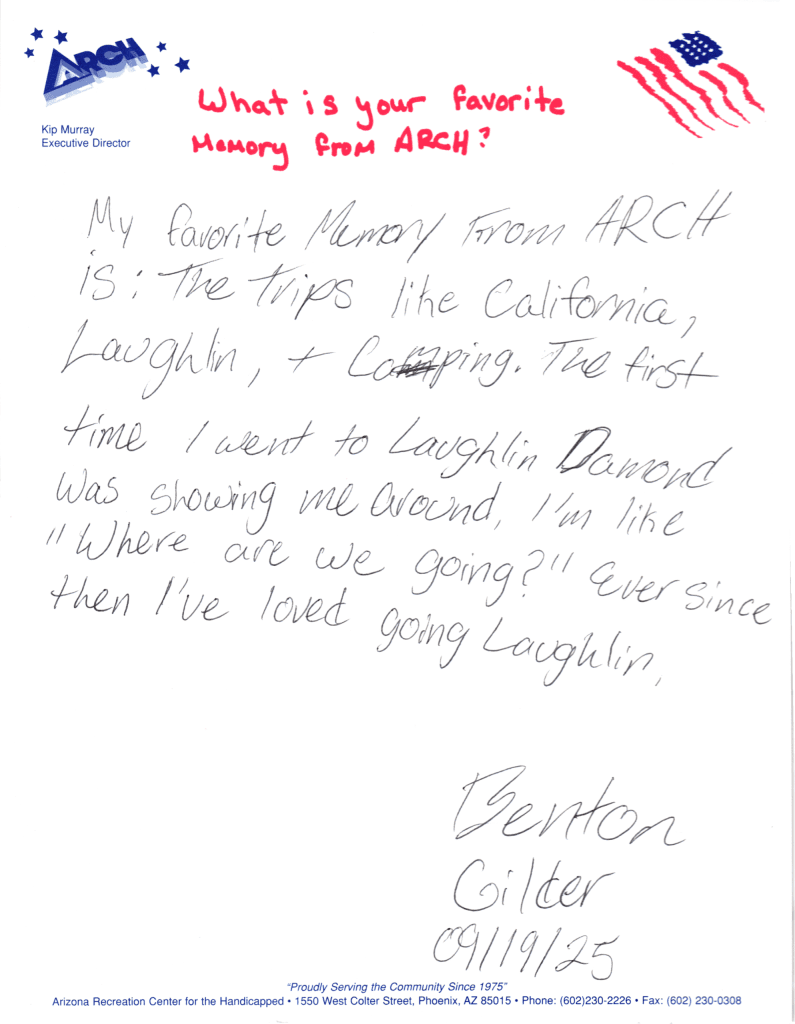 ARCH
Kip Murray
Executive Director
What is your favorite
Memory from ARCH?
My favorite Memory From ARCH
is: The trips like California,
Laughlin, + Camping. The first
time I went to Laughlin Damond
was showing me around, I'm like
"Where are we going?" Ever since
then I've loved going Laughlin.
Benton
Gilder
09/19/25
"Proudly Serving the Community Since 1975"
Arizona Recreation Center for the Handicapped • 1550 West Colter Street, Phoenix, AZ 85015 • Phone: (602)230-2226 • Fax: (602) 230-0308